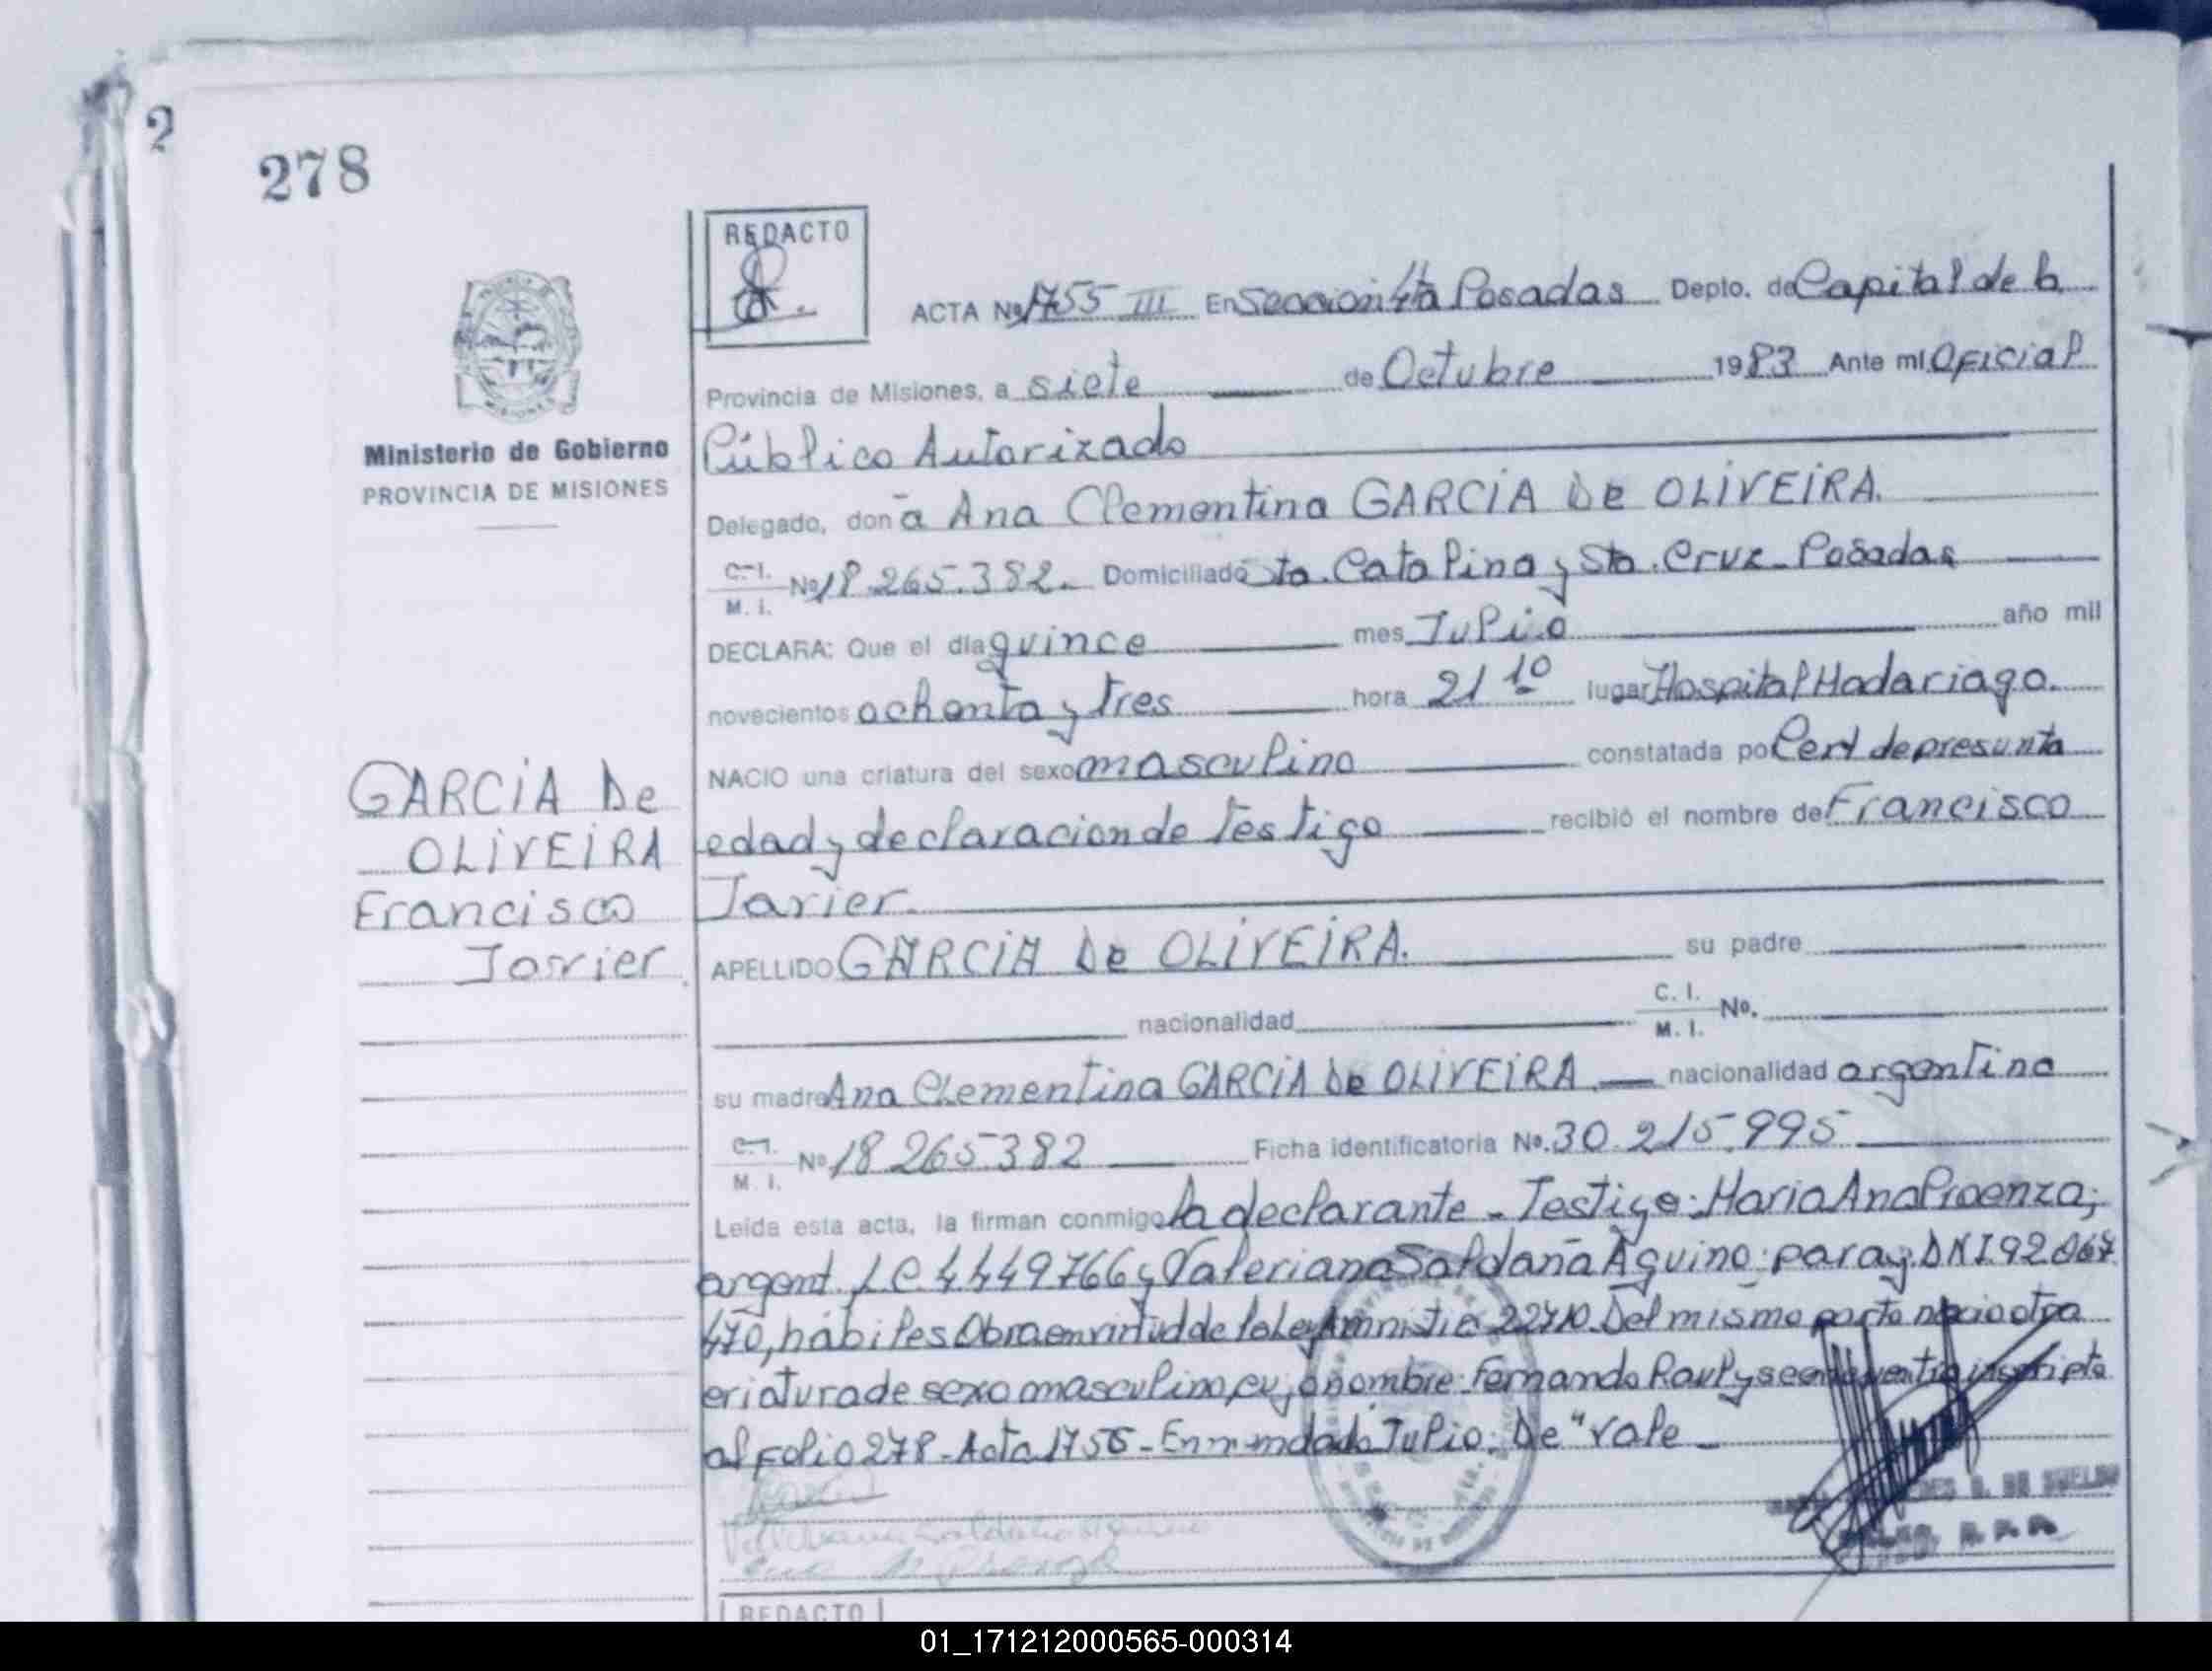 2
278
REDACTO
ACTA Nº 1755 III En Seccion 4ta Posadas Depto. de Capital de la
Provincia de Misiones, a siete de Octubre 1983 Ante mi Oficial
Ministerio de Gobierno
PROVINCIA DE MISIONES
Público Autorizado
Delegado, don a Ana Clementina GARCIA De OLIVEIRA.
C. I. M. I. Nº 18.265.382. Domiciliado Sta. Catalina y Sta. Cruz - Posadas
DECLARA: Que el dia quince mes Julio año mil
novecientos ochenta y tres hora 21 10 lugar Hospital Madariaga.
NACIO una criatura del sexo masculino constatada po Cert de presunta
edad y declaracion de testigo recibió el nombre de Francisco
Javier.
GARCIA De
OLIVEIRA
Francisco
Javier.
APELLIDO GARCIA De OLIVEIRA. su padre
nacionalidad C. I. M. I. No.
su madre Ana Clementina GARCIA De OLIVEIRA. nacionalidad argentina
C. I. M. I. Nº 18265382 Ficha identificatoria Nº. 30.215.995
Leída esta acta, la firman conmigo la declarante - Testigo: Maria Ana Proenza;
argent. LC 4.449766 y Valeriana Saldaña Aquino: paray. DNI 92067
470, hábiles Obra en virtud de la Ley Amnistia 22410. Del mismo parto nacio otra
criatura de sexo masculino cuyo nombre: Fernando Raul y se encuentra inscripta
al folio 278 - Acta 1756 - Enmendado "Julio. De" Vale -
REDACTO
01_171212000565-000314